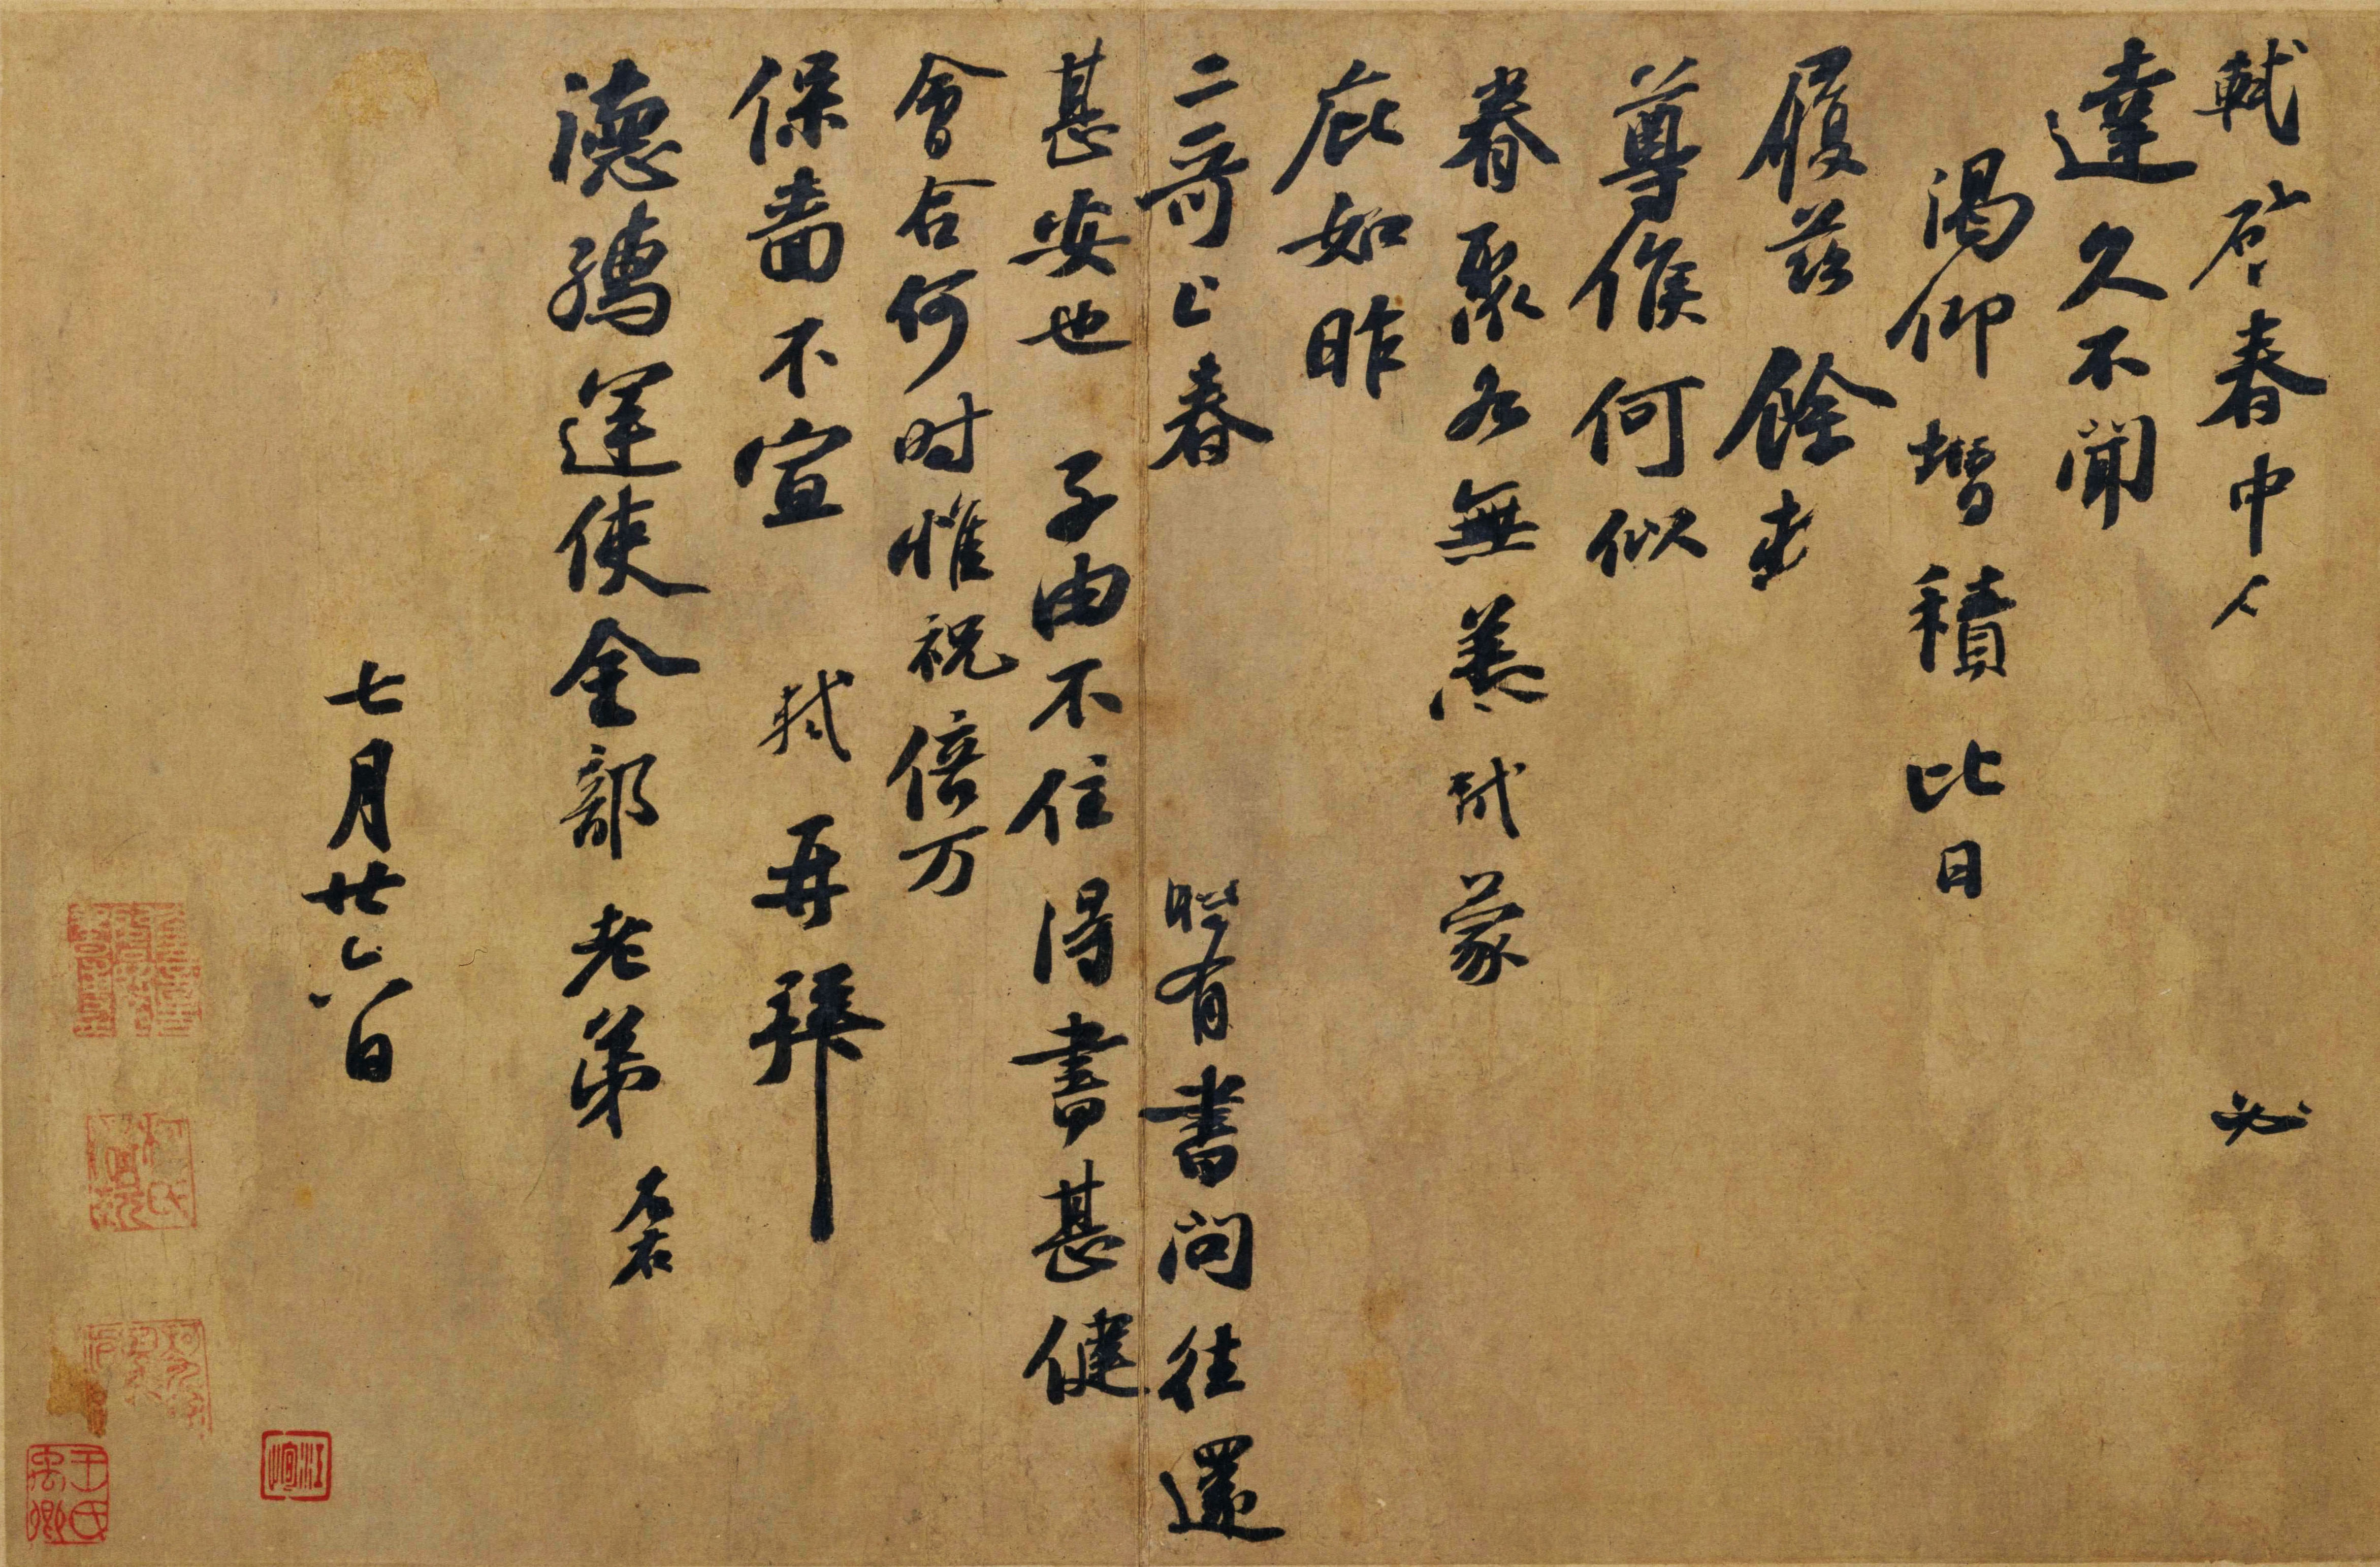 軾啓春中人 必
達久不聞
渴仰增積比日
履茲餘春
尊候何似
眷聚各無恙軾蒙
庇如昨
二哥上春 時有書問往還
甚安也 子由不住得書甚健
會合何時惟祝倍万
保嗇不宣 軾再拜
德孺運使金部老弟
七月廿六日
王氏禹卿